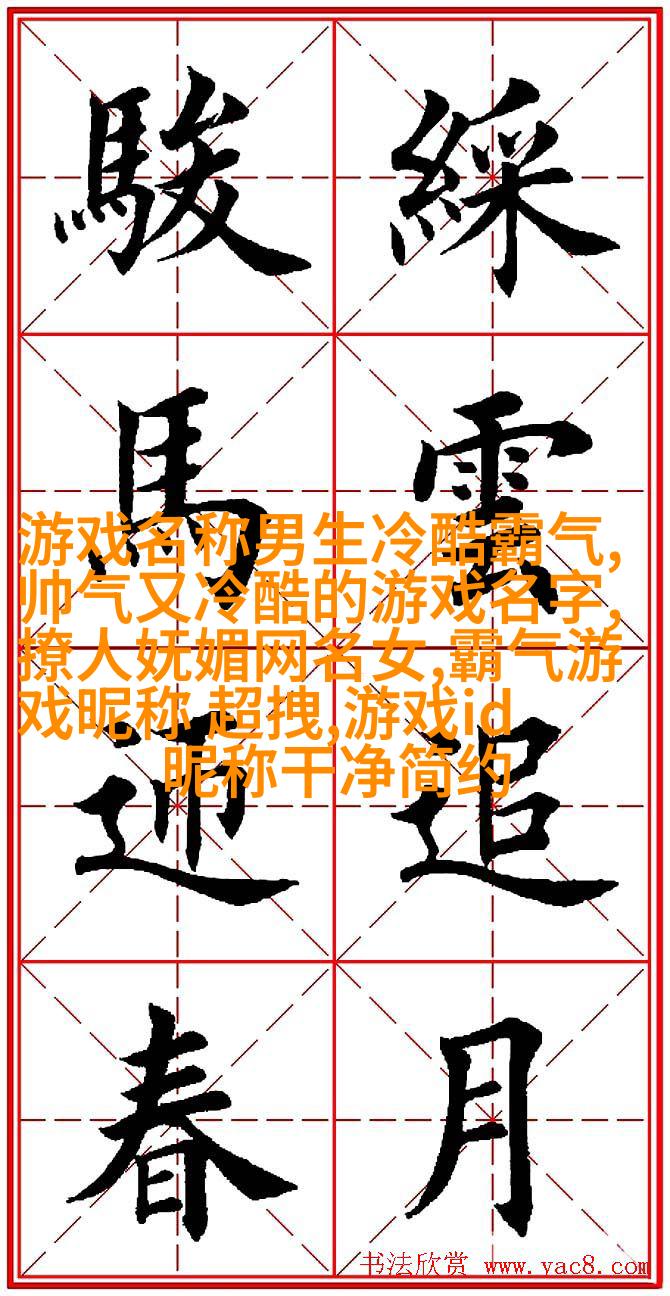 駿馬迎春
綵雲追月
游戏名称男生冷酷霸气,
帅气又冷酷的游戏名字,
撩人妩媚网名女,霸气游
戏昵称 超拽,游戏id
昵称干净简约
书法欣赏 www.yac8.com